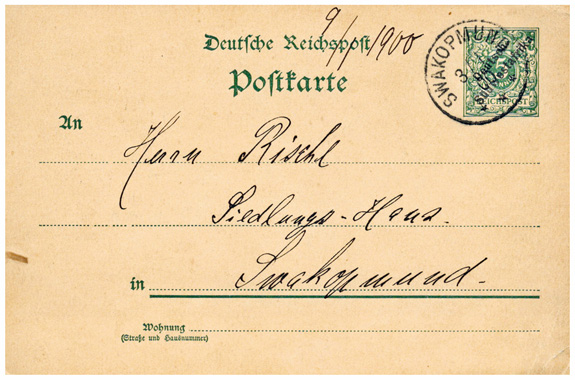 9/1/1900
Deutsche Reichspost
Postkarte
SWAKOPMUND
5
REICHSPOST
An
Herrn Rischl
Siedlungs-Haus.
in Swakopmund.
Wohnung
(Straße und Hausnummer)